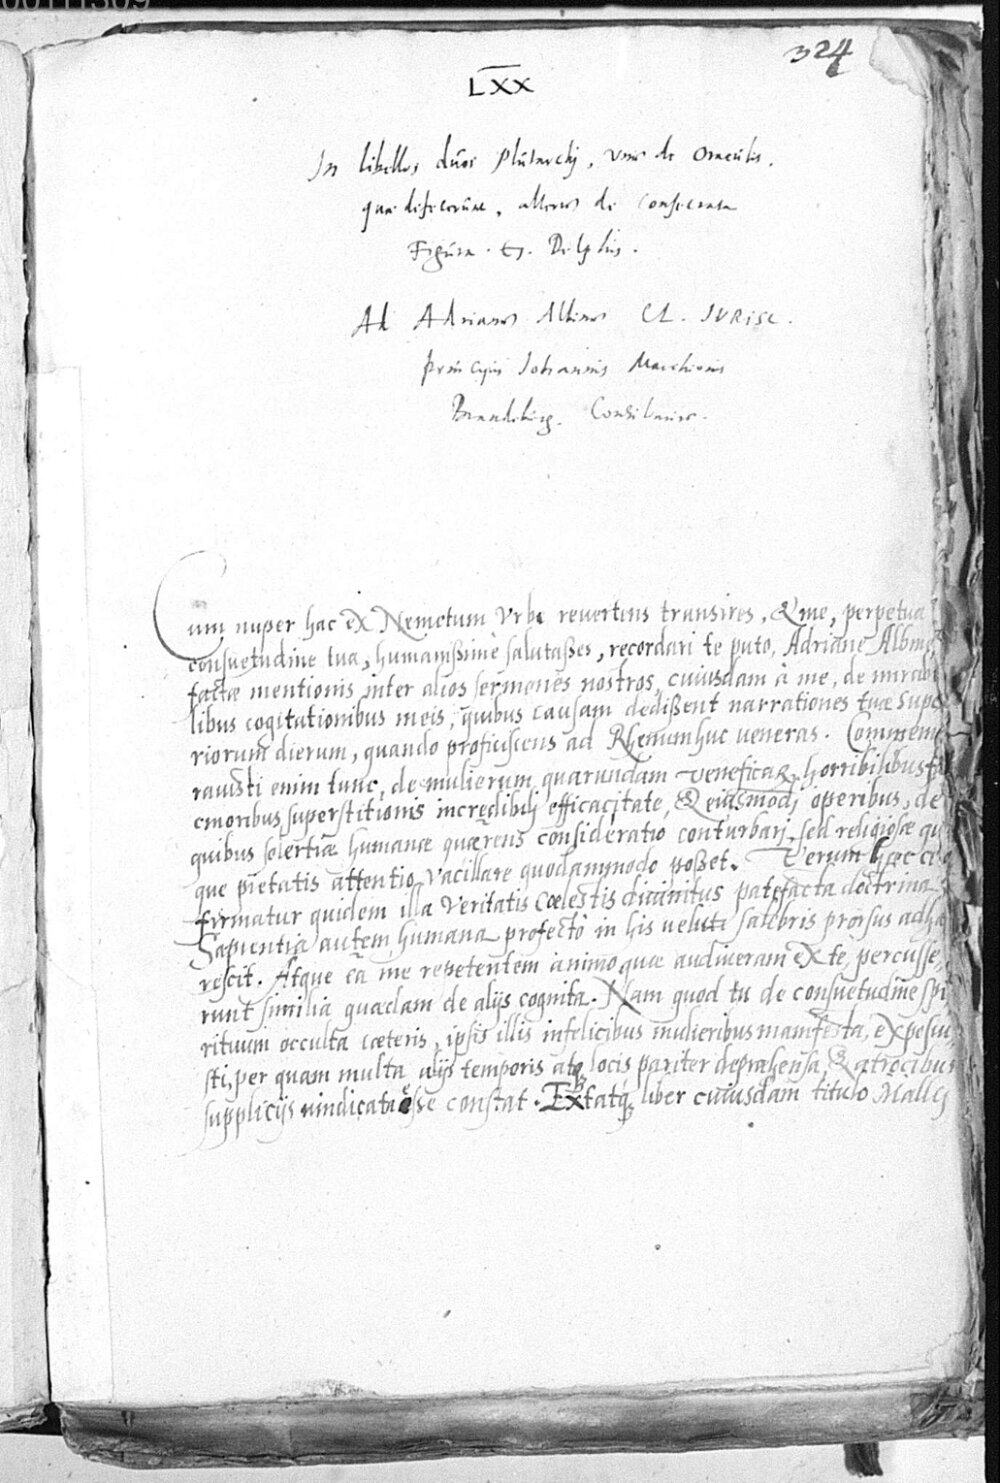 00111309
324
LXX
In libellos duos Plutarchi, unus de Oraculis,
quae defecerunt, alterus de Consecrata
Figura · Ei · Delphis ·
Ad Adrianus Albinus CL · IVRISC ·
principis Iohannis Marchionis
Brandeburg. Consiliarius.
Cum nuper hac ex Nemetum Vrbe revertens transires, & me, perpetua
consuetudine tua, humanißimè salutaßes, recordari te puto, Adriane Albine,
factae mentionis inter alios sermones nostros, cuiusdam à me, de mirabi
libus cogitationibus meis, quibus causam dedißent narrationes tuae supe
riorum dierum, quando proficiscens ad Rhenum huc veneras. Comme
rauisti enim tunc, de mulierum quarundam veneficar, horribilibus fa
cinoribus, superstitionis incredibili efficacitate, & eiusmodi operibus, de
quibus solertiae humanae quaerens consideratio conturbari, sed religiosae quo
que pietatis attentio vacillare quodammodo poßet. Verum haec co
firmatur quidem illa Veritatis Coelestis diuinitus patefacta doctrina
Sapientia autem humana profecto in his veluti salebris prorsus adhae
rescit. Atque ea me repetentem animo quae audiueram ex te, percusse
runt similia quaedam de alijs cognita. Nam quod tu de consuetudine spi
rituum occulta caeteris, ipsis illis infelicibus mulieribus manifesta, exposui
sti, per quam multa alijs temporis atq locis pariter deprehensa, & atrocibus
supplicijs vindicata eße constat. Extatq liber cuiusdam titulo Mallei